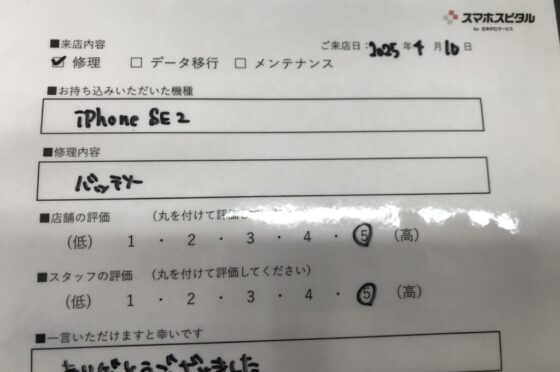 スマホスピタル
for 日本PCサービス
■来店内容
ご来店日：2025年4月10日
☑ 修理 □ データ移行 □ メンテナンス
■お持ち込みいただいた機種
iPhone SE2
■修理内容
バッテリー
■店舗の評価 （丸を付けて評価し
（低） 1 ・ 2 ・ 3 ・ 4 ・ ⑤ （高）
■スタッフの評価 （丸を付けて評価してください）
（低） 1 ・ 2 ・ 3 ・ 4 ・ ⑤ （高）
■一言いただけますと幸いです
ありがとうございました